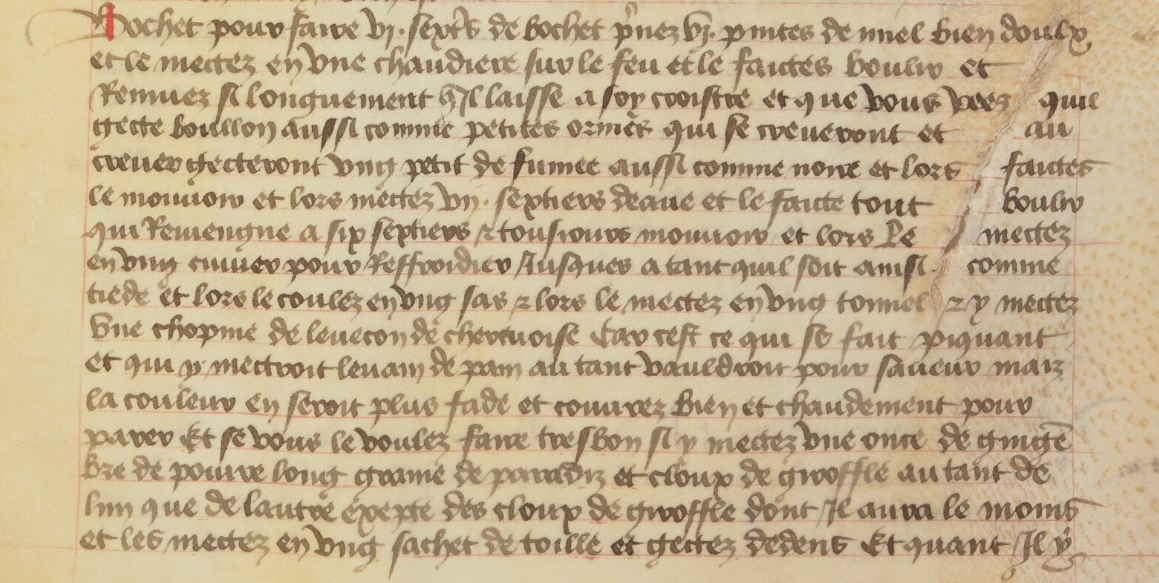 Bochet pour faire vj. sextrs de bochet prnez vj. pintes de miel bien doulx
et le mectez en une chaudiere sur le feu et le faictes boulir et
Remuez si longuement quil laisse a soy croistre et que vous veez quil
gecte boullon aussi comme petites ormes qui se creveront et au
crever gecteront ung petit de fumee aussi comme noire et lors faictes
le mouvoir et lors mectez vij. sextiers deaue et le faicte tout boulir
qui Reviengne a six septiers & tousiours mouvoir et lors le mectez
en ung cuvier pour Reffroidier jusques a tant quil soit ainsi comme
tiede et lors le coulez en ung sas & lors le mectez en ung tonnel & y mectez
une chopine de levecon de chervoise Car cest ce qui se fait piquant
et qui y mectroit levain de pain autant vauldroit pour saveur maiz
la couleur en seroit plus fade et couvrez bien et chaudement pour
parer Et se vous le voulez faire tresbon si y mectez une once de gingē
bre de poivre long graine de paradiz et cloux de giroffle autant de
lun que de lautre exepte des cloux de giroffle dont Il aura le moins
et les mectez en ung sachet de toille et gectez dedens Et quant Il y